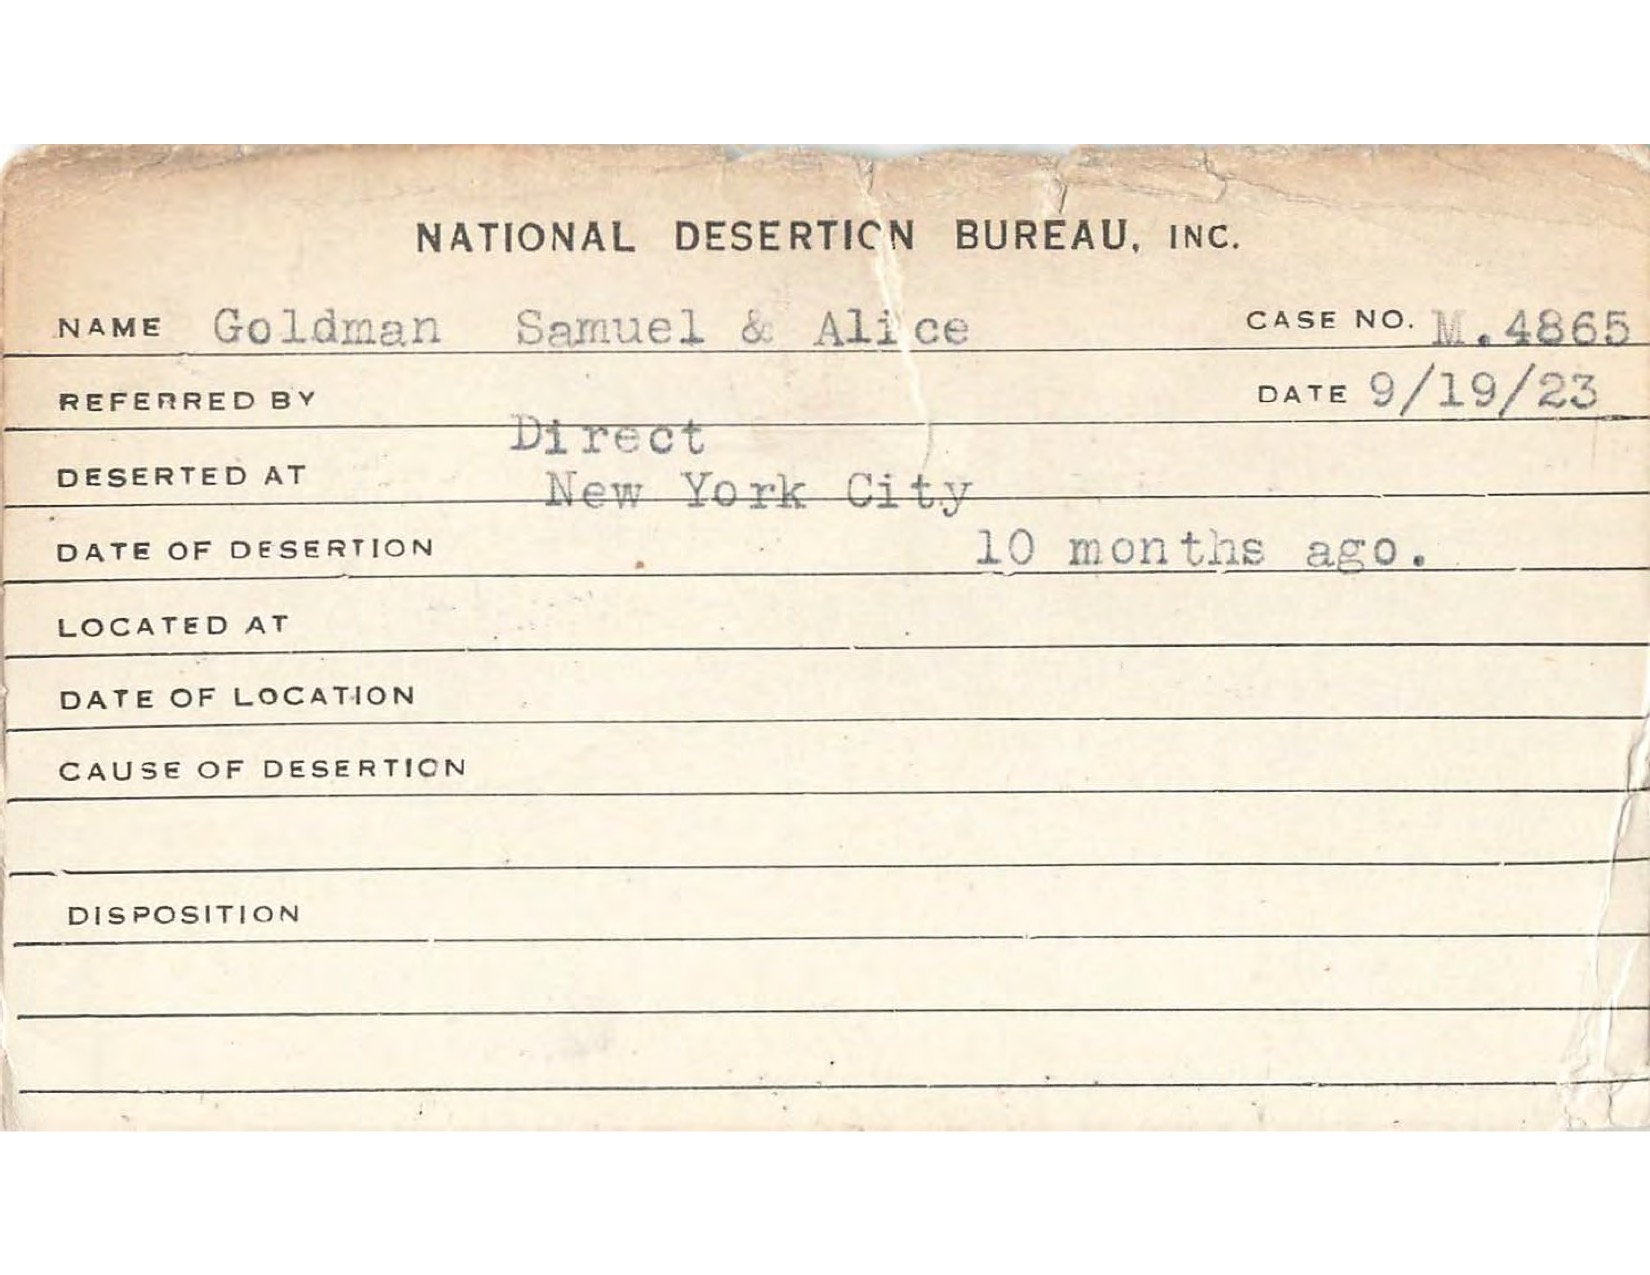 NATIONAL DESERTION BUREAU, INC.
NAME Goldman Samuel & Alice CASE NO. M.4865
REFERRED BY DATE 9/19/23
Direct
DESERTED AT New York City
DATE OF DESERTION 10 months ago.
LOCATED AT
DATE OF LOCATION
CAUSE OF DESERTION
DISPOSITION